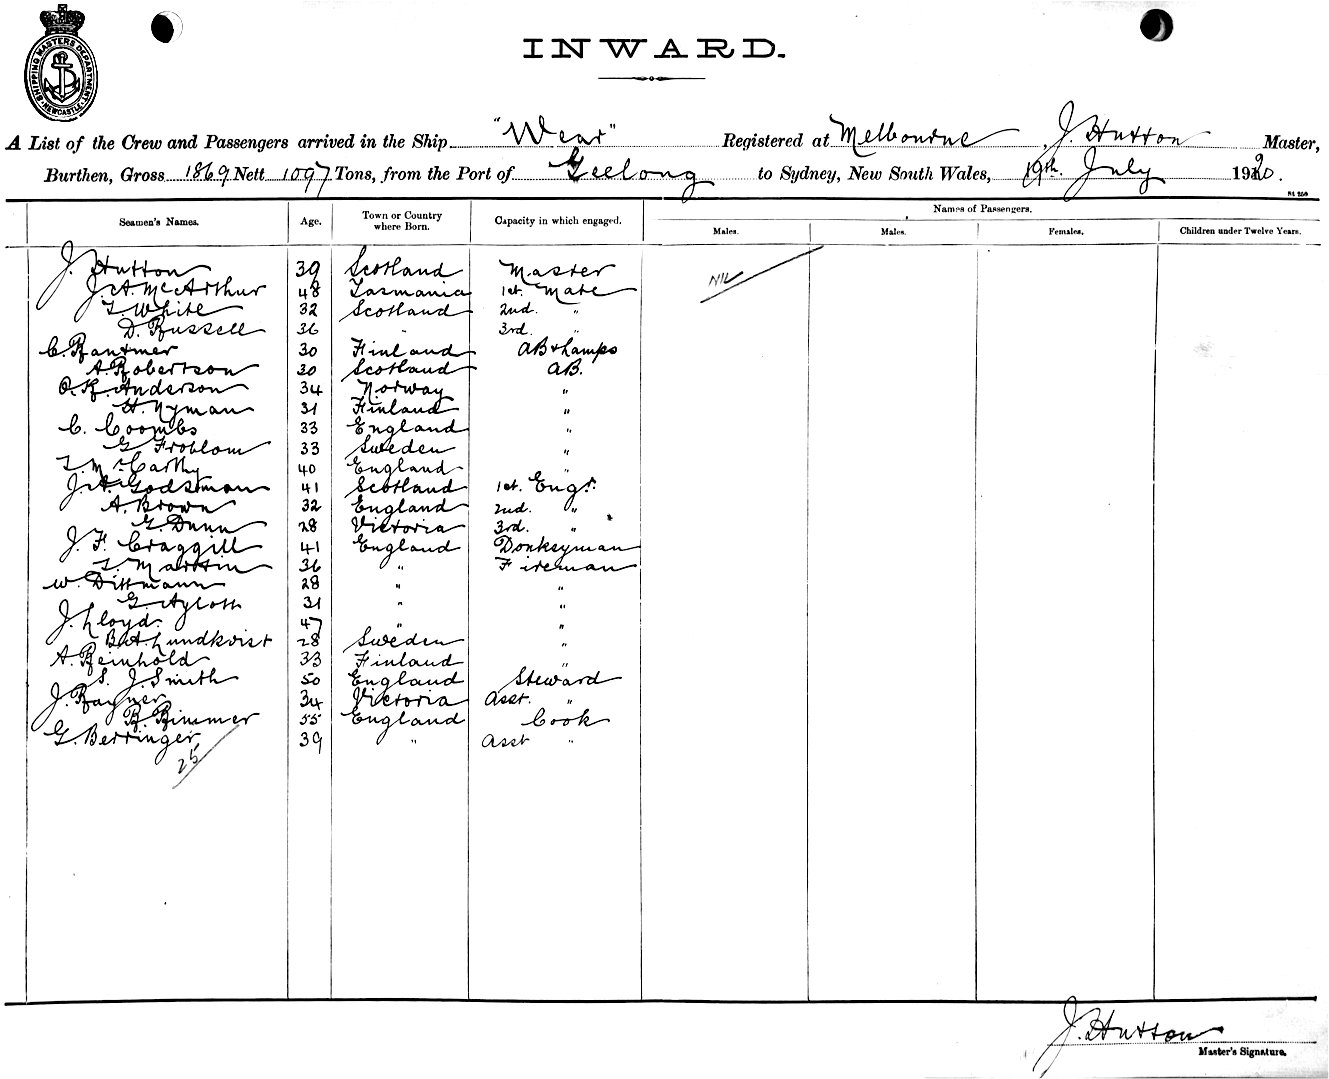 SHIPPING MASTERS DEPARTMENT NEWCASTLE
INWARD.
A List of the Crew and Passengers arrived in the Ship "Wear" Registered at Melbourne, J. Hutton Master,
Burthen, Gross 1869 Nett 1097 Tons, from the Port of Geelong to Sydney, New South Wales, 19th July 1920.
Seamen's Names. Age. Town or Country where Born. Capacity in which engaged. Names of Passengers.
Males. Males. Females. Children under Twelve Years.
J. Hutton 39 Scotland Master NIL
J. A. McArthur 48 Tasmania 1st. Mate
T. White 32 Scotland 2nd. "
D. Russell 36 " 3rd. "
C. 30 Finland AB & Lamps
A. Robertson 30 Scotland AB.
O. K. Anderson 34 Norway "
H. Nyman 31 Finland "
C. Coombs 33 England "
G Froblom 33 Sweden "
T. McCarthy 40 England "
J. A. Godsman 41 Scotland 1st. Engr.
A. Brown 32 England 2nd. "
G. Dunn 28 Victoria 3rd. "
J. F. Craggill 41 England Donkeyman
T. Martin 36 " Fireman
W. Dittmann 28 " "
G. 31 " "
J. Lloyd. 47 " "
B. A. Lundkvist 28 Sweden "
A. Reinhold 33 Finland "
S. J. Smith 50 England Steward
J. Rayner 34 Victoria Asst. "
R. Rimmer 55 England Cook
G. Berringer 39 " Asst "
25
J. Hutton
Master's Signature.